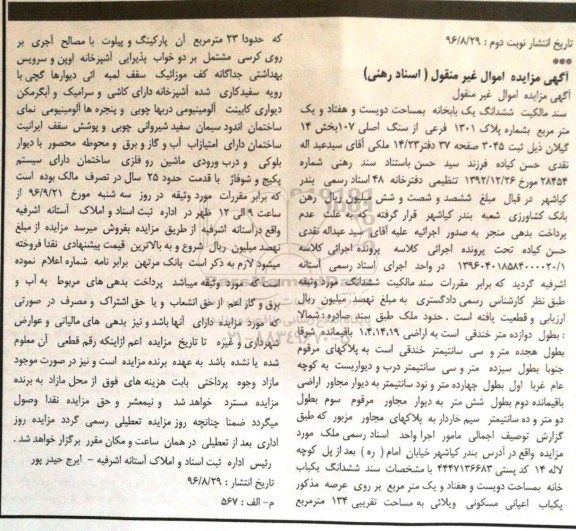 تاریخ انتشار نوبت دوم : ۹۶/۸/۲۹
آگهی مزایده اموال غیر منقول ( اسناد رهنی)
آگهی مزایده اموال غیر منقول
سند مالکیت ششدانگ یک بابخانه بمساحت دویست و هفتاد و یک
متر مربع بشماره پلاک ۱۳۰۱ فرعی از سنگ اصلی ۱۰۷بخش ۱۴
گیلان ذیل ثبت ۳۰۴۵ صفحه ۳۷ دفتر۱۴/۲۳ ملکی آقای سیدعبد اله
نقدی حسن کیاده فرزند سید حسن باستناد سند رهنی شماره
۲۸۴۵۴ مورخ ۱۳۹۲/۱۲/۲۶ تنظیمی دفترخانه ۴۸ اسناد رسمی بندر
کیاشهر در قبال مبلغ ششصد و شصت و شش میلیون ریال در رهن
بانک کشاورزی شعبه بندر کیاشهر قرار گرفته که به علت عدم
پرداخت بدهی منجر به صدور اجرائیه علیه آقای سید عبداله نقدی
حسن کیاده تحت پرونده اجرائی کلاسه پرونده اجرائی کلاسه
۱۳۹۶۰۴۰۱۸۵۸۴۰۰۰۰۲۰/۱ در واحد اجرای اسناد رسمی آستانه
اشرفیه گردید که برابر مقررات سند مالکیت ششدانگ مورد وثیقه
طبق نظر کارشناس رسمی دادگستری به مبلغ نهصد میلیون ریال
ارزیابی و قطعیت یافته است . حدود ملک طبق سند صادره : شمالا
: بطول دوازده متر خندقی است به اراضی ۱،۴،۱۴،۱۹ باقیمانده شرقا
بطول هجده متر و سی سانتیمتر خندقی است به پلاکهای مرقوم
جنوبا بطول سیزده متر و سی سانتیمتر درب و دیواریست به کوچه
عام غربا اول بطول چهارده متر و نود سانتیمتر به دیوار مجاور اراضی
باقیمانده دوم بطول شش متر به دیوار مجاور مرقوم سوم بطول
دو متر و ده سانتیمتر سیم خاردار به پلاکهای مجاور مزبور که طبق
گزارش توصیف اجمالی مامور اجرا واحد اسناد رسمی ملک مورد
مزایده واقع در آدرس بندر کیاشهر خیابان امام ( ره ) بعد از پل کوچه
لاله ۱۴ کد پستی ۴۴۴۷۱۳۶۶۸۳ با مشخصات سند ششدانگ یکباب
خانه بمساحت دویست و هفتاد و یک متر مربع بر روی عرصه مذکور
یکباب اعیانی مسکونی ویلائی به مساحت تقریبی ۱۳۴ مترمربع
که حدودا ۲۳ مترمربع آن پارکینگ و پیلوت با مصالح آجری بر
روی کرسی مشتمل بر دو خواب پذیرایی آشپزخانه اوپن و سرویس
بهداشتی جداگانه کف موزائیک سقف لمبه ائی دیوارها گچی با
رویه سفیدکاری شده آشپزخانه دارای کاشی و سرامیک و آبگرمکن
دیواری کابینت آلومینیومی دربها چوبی و پنجره ها آلومینیومی نمای
ساختمان اندود سیمان سفید شیروانی چوبی و پوشش سقف ایرانیت
ساختمان دارای امتیازاب آب و گاز و برق و محوطه محصور با دیوار
بلوکی و درب ورودی ماشین رو فلزی ساختمان دارای سیستم
پکیج و شوفاژ با قدمت حدود ۲۵ سال در تصرف مالک بوده است
که برابر مقررات مورد وثیقه در روز سه شنبه مورخ ۹۶/۹/۲۱ از
ساعت ۹ الی ۱۲ ظهر در اداره ثبت اسناد و املاک آستانه اشرفیه
واقع درآستانه اشرفیه از طریق مزایده بفروش میرسد مزایده از مبلغ
نهصد میلیون ریال شروع و به بالاترین قیمت پیشنهادی نقدا فروخته
میشود لازم به ذکر است بانک مرتهن برابر نامه شماره اعلام نموده
است که مورد وثیقه میباشد پرداخت بدهی های مربوط به آب و
برق و گاز اعم از حق انشعاب و یا حق اشتراک و مصرف در صورتی
که مورد مزایده دارای آنها باشد و نیز بدهی های مالیاتی و عوارض
شهرداری و غیره تا تاریخ مزایده اعم ازاینکه رقم قطعی آن معلوم
شده یا نشده باشد به عهده برنده مزایده است و نیز در صورت موجود
مازاد وجوه پرداختی بابت هزینه های فوق از محل مازاد به برنده
مزایده مسترد خواهد شد و نیمعشر و حق مزایده نقدا وصول
میگردد ضمنا چنانچه روز مزایده تعطیلی رسمی گردد مزایده روز
اداری بعد از تعطیلی در همان ساعت و مکان مقرر برگزار خواهد شد .
رئیس اداره ثبت اسناد و املاک آستانه اشرفیه – ایرج حیدر پور
تاریخ انتشار : ۹۶/۸/۲۹
م- الف : ۵۶۷